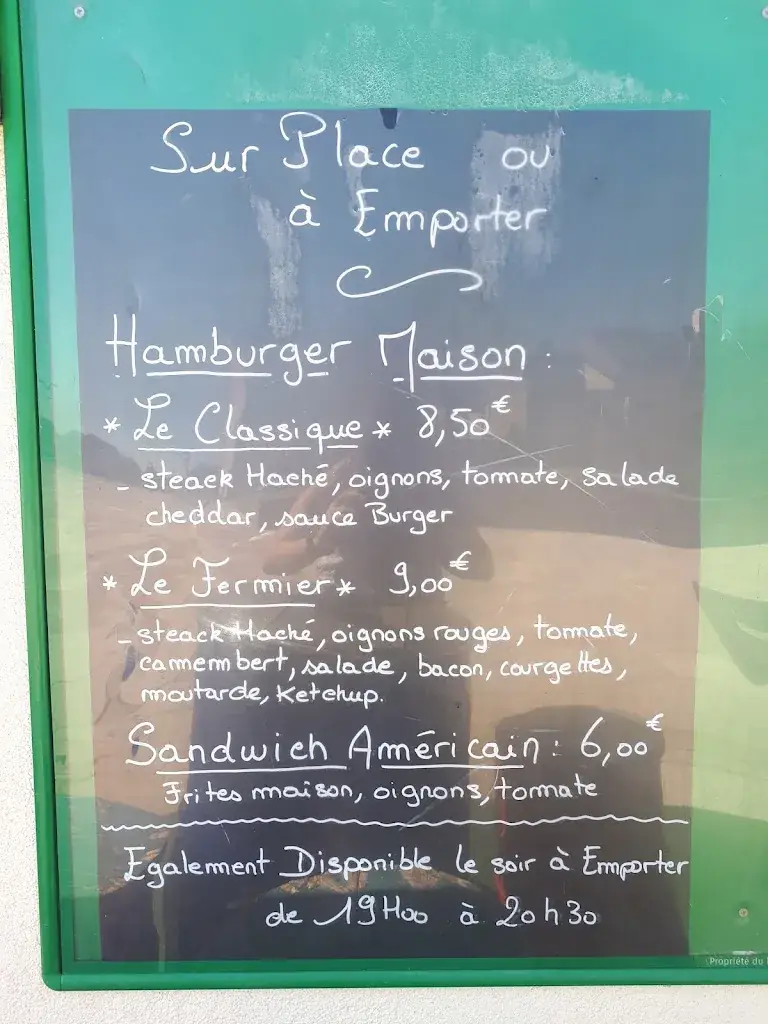 Sur Place ou
à Emporter
Hamburger Maison :
* Le Classique * 8,50€
- steack Haché, oignons, tomate, salade
cheddar, sauce Burger
* Le Fermier * 9,00€
- steack Haché, oignons rouges, tomate,
camembert, salade, bacon, courgettes,
moutarde, Ketchup.
Sandwich Américain : 6,00€
Frites maison, oignons, tomate
Egalement Disponible le soir à Emporter
de 19H00 à 20h30
Propriété du